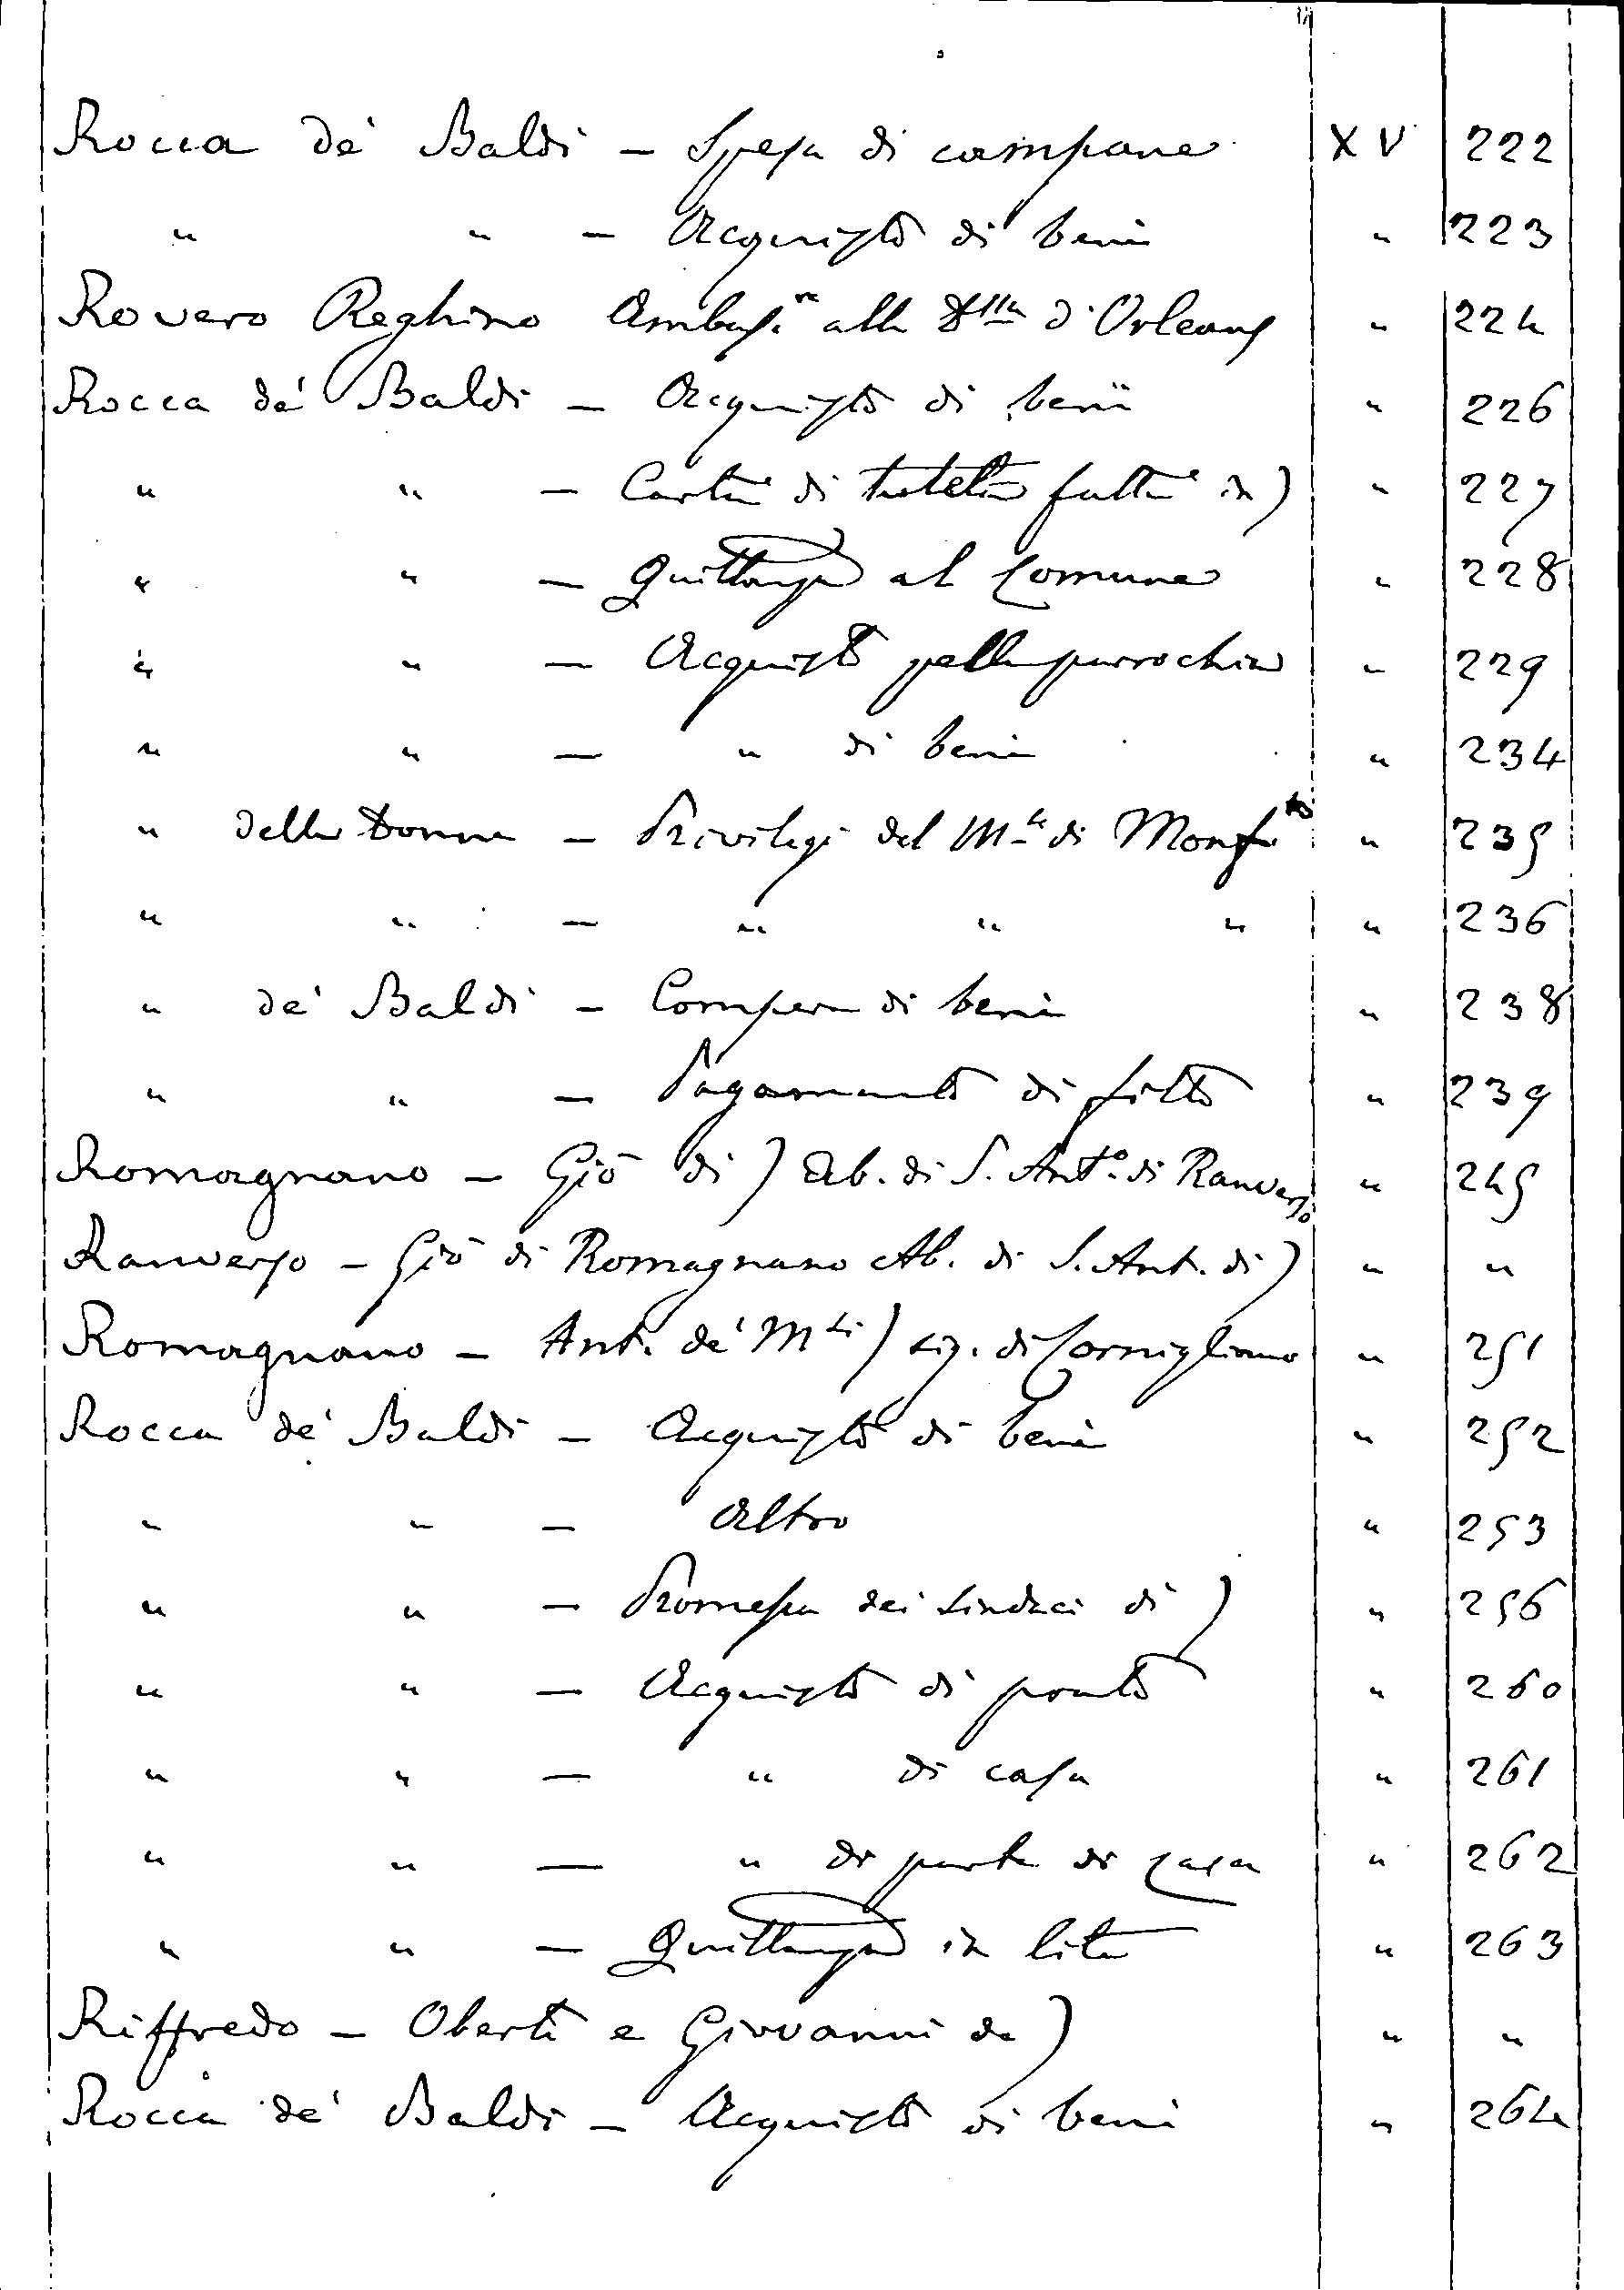 Rocca de' Baldi — Spesa di campane XV 222
" " — Acquisto di beni " 223
Rovero Reghino Ambas.re alla D.lla d'Orleans " 224
Rocca de' Baldi — Acquisto di beni " 226
" " — Carta di tutela fatta in) " 227
" " — Quittanza al Comune " 228
" " — Acquisto pella parrochia " 229
" " — " di beni " 234
" della Donna — Privilegi del M.se di Monf.to " 235
" " — " " " " 236
" de' Baldi — Compera di beni " 238
" " — Pagamento di fitto " 239
Romagnano — Gio di) Ab. di S. Ant.o di Ranverso " 245
Ranverso — Gio di Romagnano Ab. di S. Ant. di) " "
Romagnano — Ant. de' M.si) sig. di Cornigliano " 251
Rocca de' Baldi — Acquisto di beni " 252
" " — Altro " 253
" " — Promessa dei sindaci di) " 256
" " — Acquisto di prato " 260
" " — " di casa " 261
" " — " di parte di casa " 262
" " — Quittanza in lite " 263
Riffredo — Oberto e Giovanni de) " "
Rocca de' Baldi — Acquisto di beni " 264